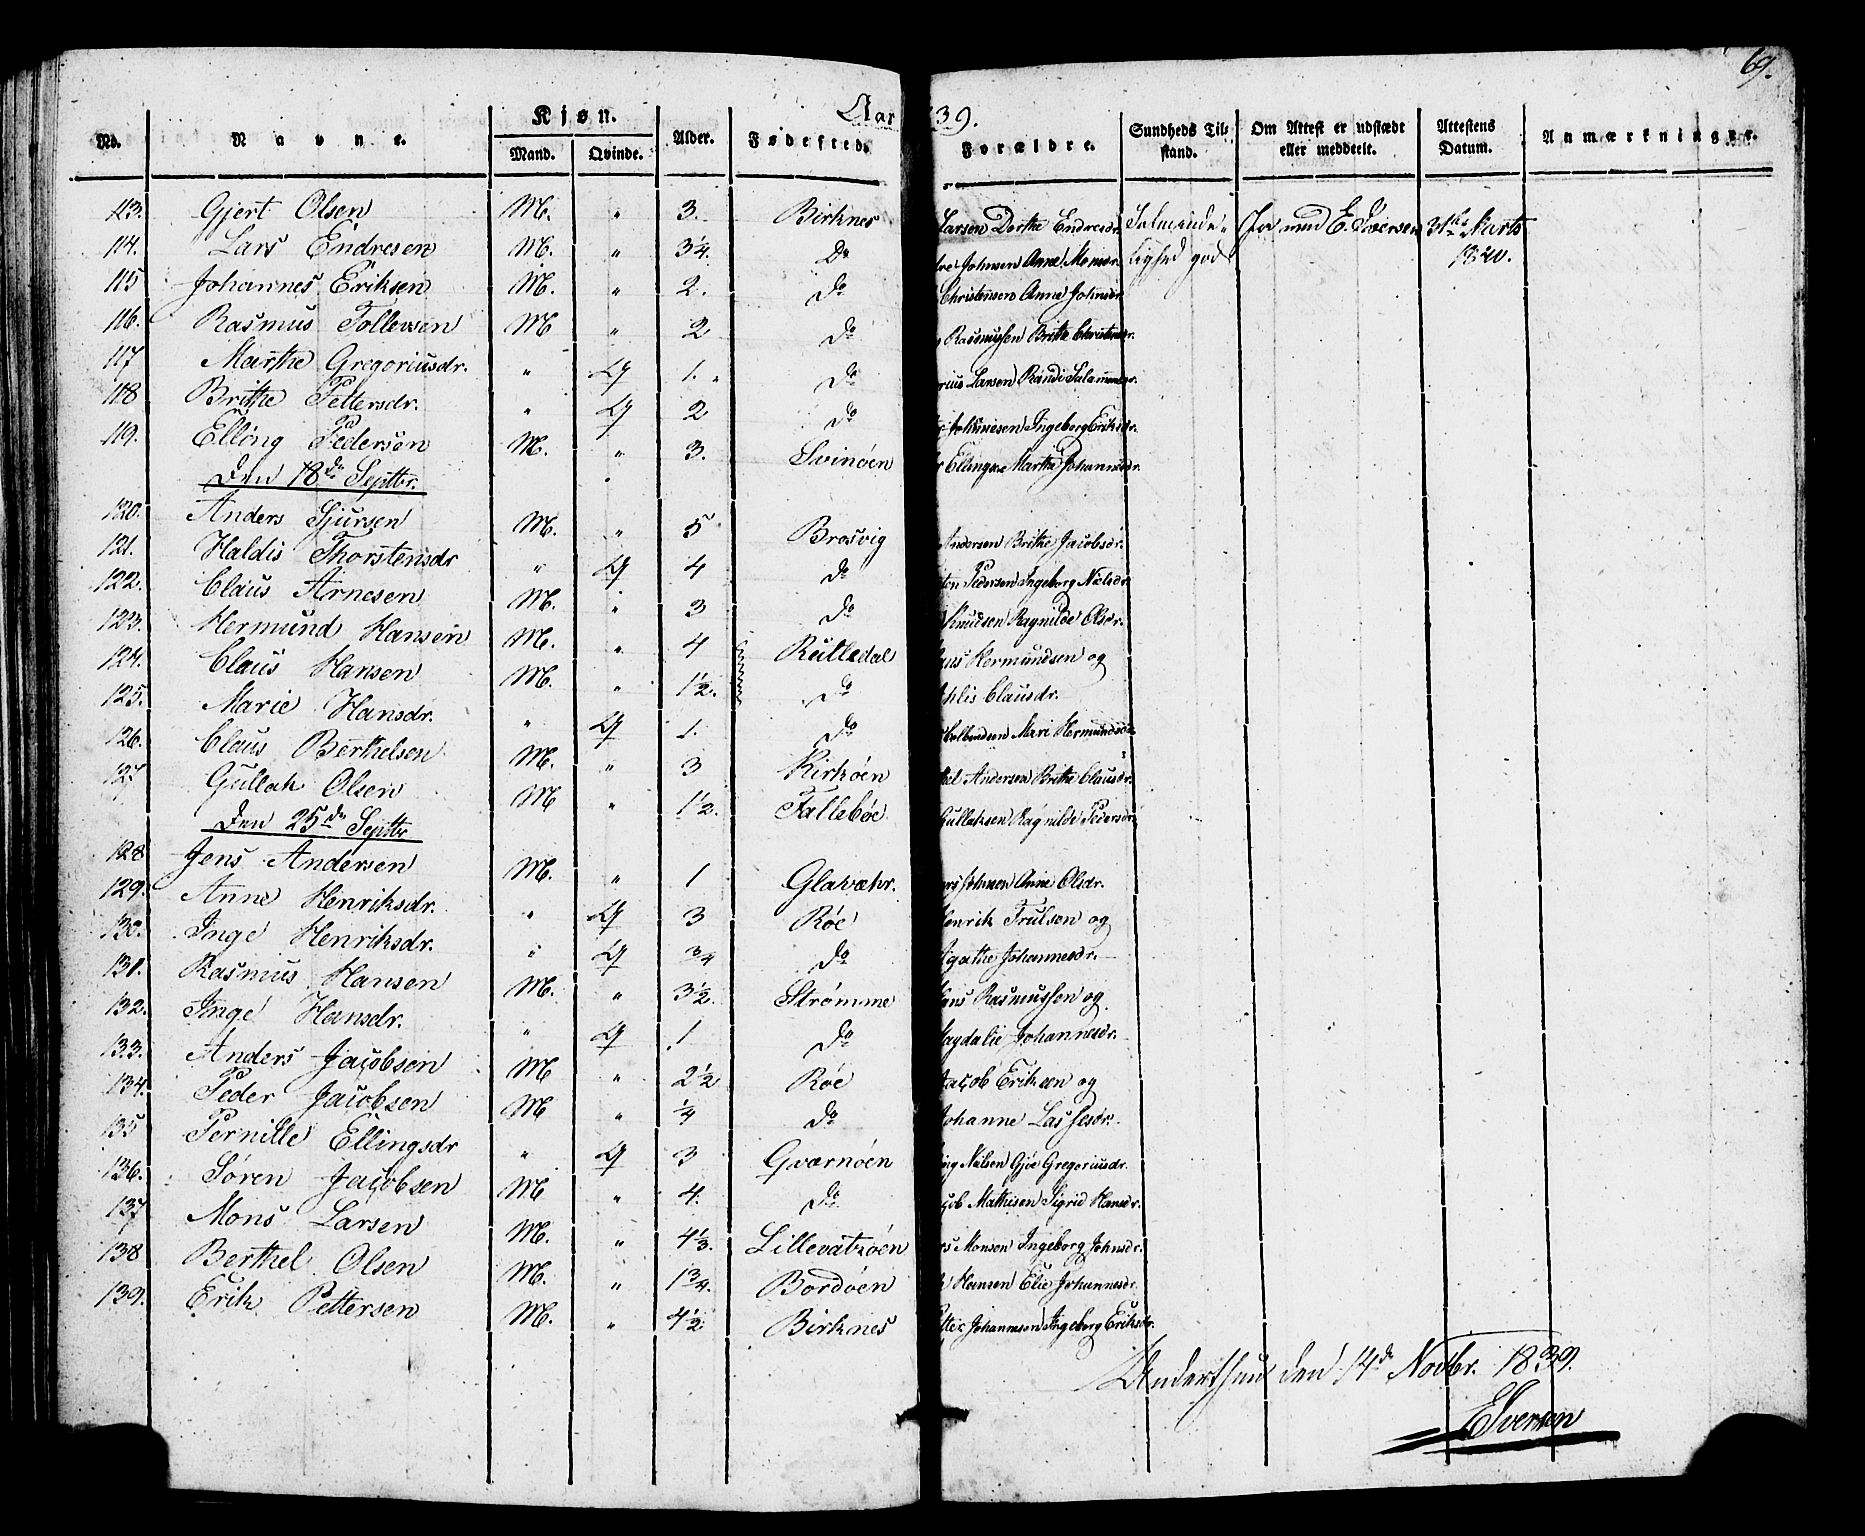 69.
Aar 39.
No. Navne. Kjøn. Mand. Qvinde. Alder. Fødested. Forældre. Sundheds Til- stand. Om Attest er udstædt eller meddeelt. Attestens Datum. Anmærkninger.
113. Gjert Olsen M. " 3. Birknes Larsen Dorthe Endresdr. Jver med E. Iversen 31te Marts
114. Lars Endresen M. " 3¼. Do Johnsen Anne Monsdr. lighed god 1840.
115 Johannes Eriksen M. " 2. Do Christensen Anne Johnsdr.
116. Rasmus Tollevsen M " 2 Do Rasmussen Brithe Christensdr.
117 Marthe Gregoriusdr. " Q 1. " Do rius Larsen Randi Salamonsdr.
118 Brithe Pettersdr. " Q 2 Do Johannesen Ingeborg Eriksdr.
119. Elling Pedersen M. " 3. Svinöen Ellingsen Marthe Johannesdr.
Den 18de Septbr.
120. Anders Sjursen M. " 5 Brosvig Andersen Brithe Jacobsdr.
121. Haldis Thorstensdr " Q 4 Do ten Pedersen Ingeborg Nielsdr.
122. Claus Arnesen M. " 3 Do Knudsen Ragnilde Olsdr.
123. Hermund Hansen M. " 4 Rulledal ans Hermundsen og
124. Claus Hansen M. " 1½. Do hlis Clausdr.
125. Marie Hansdr. " Q 1. Do Mari Hermundsdr.
126. Claus Berthelsen M. " 3 Kirköen el Andersen Brithe Clausdr.
127 Gullak Olsen M " 1½. Talleböe Gullaksen Ragnilde Pedersdr.
Den 25de Septbr
128 Jens Andersen M. " 1 Glavæhr. ers Johnsen Anne Olsdr.
129. Anne Henriksdr. " Q 3 Röe Henrik Trulsen og
130. Inge Henriksdr. " Q ¾ Do Agathe Johannesdr.
131. Rasmus Hansen M. " 3½. Strömme Hans Rasmussen og
132. Inge Hansdr. " Q 1 Do Magdalie Johannesdr.
133. Anders Jacobsen M " 2½ Röe Jacob Eriksen og
134. Peder Jacobsen M " ¼ Do Johanne Lassesdr.
135 Pernille Ellingsdr " Q 3 Gværnöen ing Nielsen Gjöe Gregoriusdr.
136. Sören Jacobsen M " 4. Do cob Mathisen Sigrid Hansdr.
137 Mons Larsen M. " 4⅓. Lillevatsöen rs Monsen Ingeborg Johnsdr.
138 Berthel Olsen M. " 1¾. Bordöen Hansen Elie Johannesdr.
139. Erik Pettersen M. " 4½ Birknes tter Johannesen Ingeborg Eriksdr.
den 14de Novbr. 1839.
E Iversen